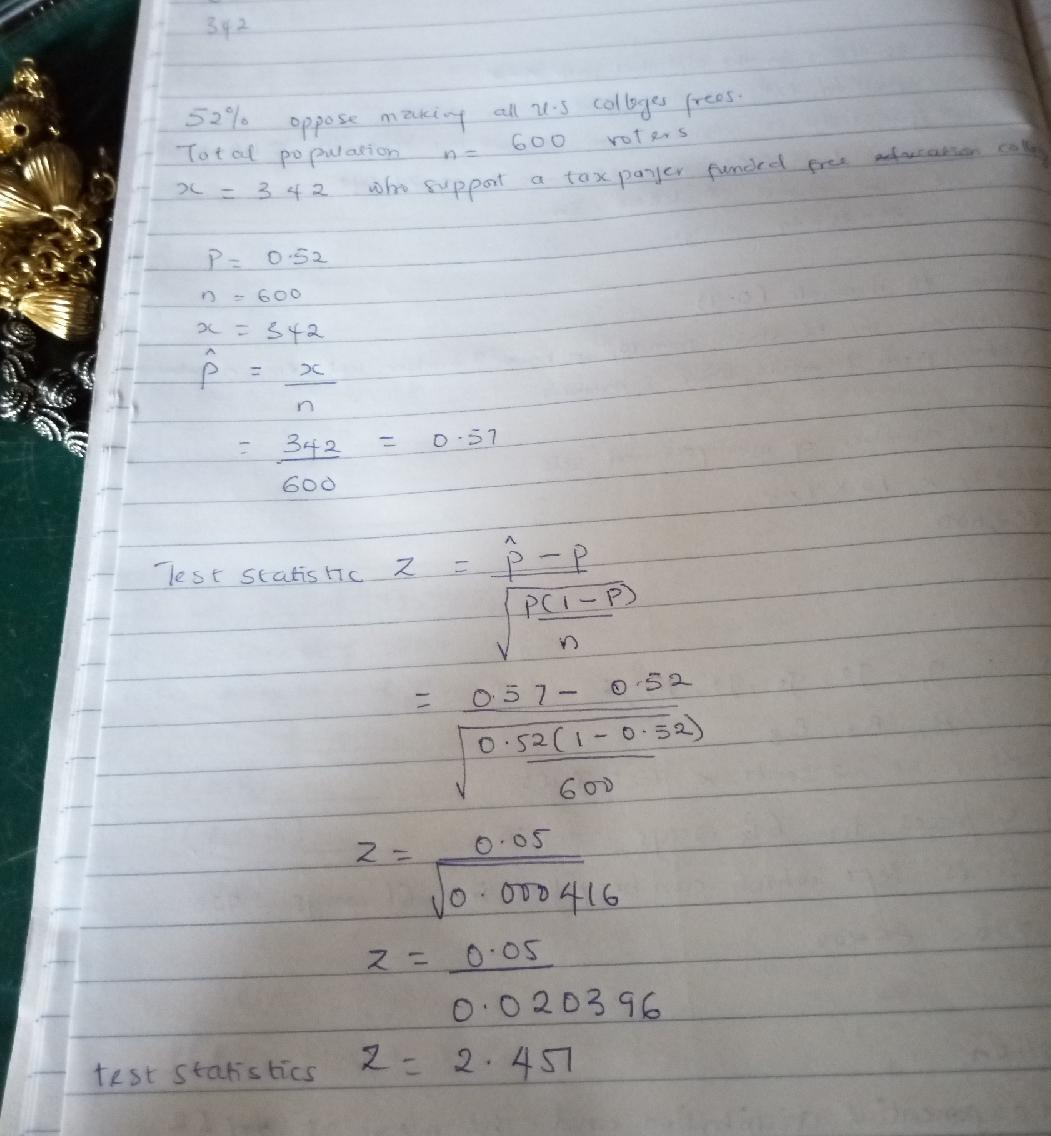 342
52% oppose making all U.S colleges frees.
Total population n = 600 voters
x = 342 who support a tax payer funded free education
P = 0.52
n = 600
x = 342
p̂ = x
n
= 342 = 0.57
600
Test statistic Z = p̂ - P
√P(1-P)
n
= 0.57 - 0.52
√0.52(1-0.52)
600
Z = 0.05
√0.000416
Z = 0.05
0.020396
test statistics Z = 2.451